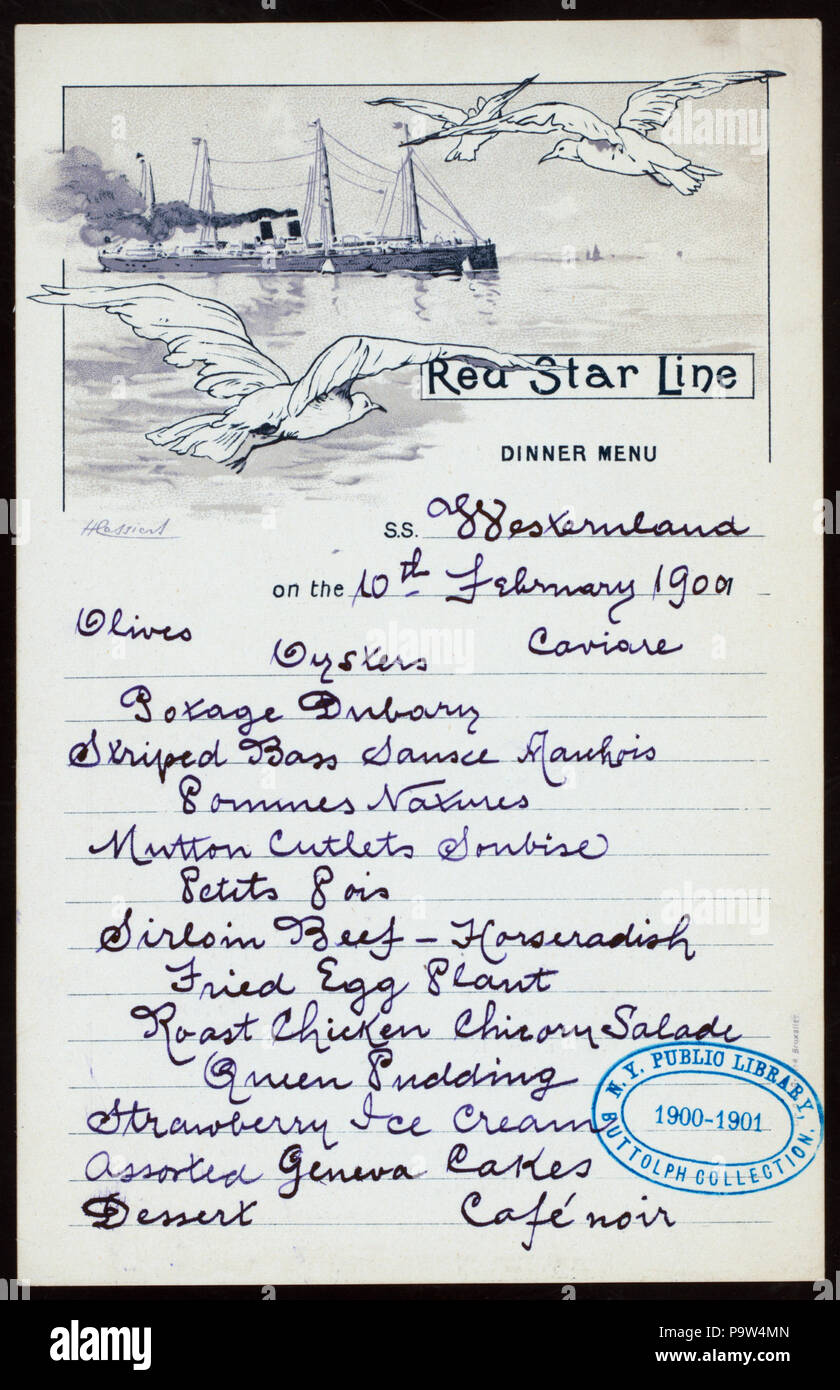 Red Star Line
DINNER MENU
HCassiers
S.S. Westernland
on the 10th February 1900
Olives Oysters Caviare
Potage Dubary
Striped Bass Sausce
Pommes Natures
Mutton Cutlets Soubise
Petits Pois
Sirloin Beef - Horseradish
Fried Egg Plant
Roast Chicken Chicory Salade
Queen Pudding
Strawberry Ice Cream
Assorted Geneva Cakes
Dessert Café noir
Bruxelles
N.Y. PUBLIC LIBRARY,
1900-1901
BUTTOLPH COLLECTION.
alamy
alamy stock photo
P9W4MN
www.alamy.com